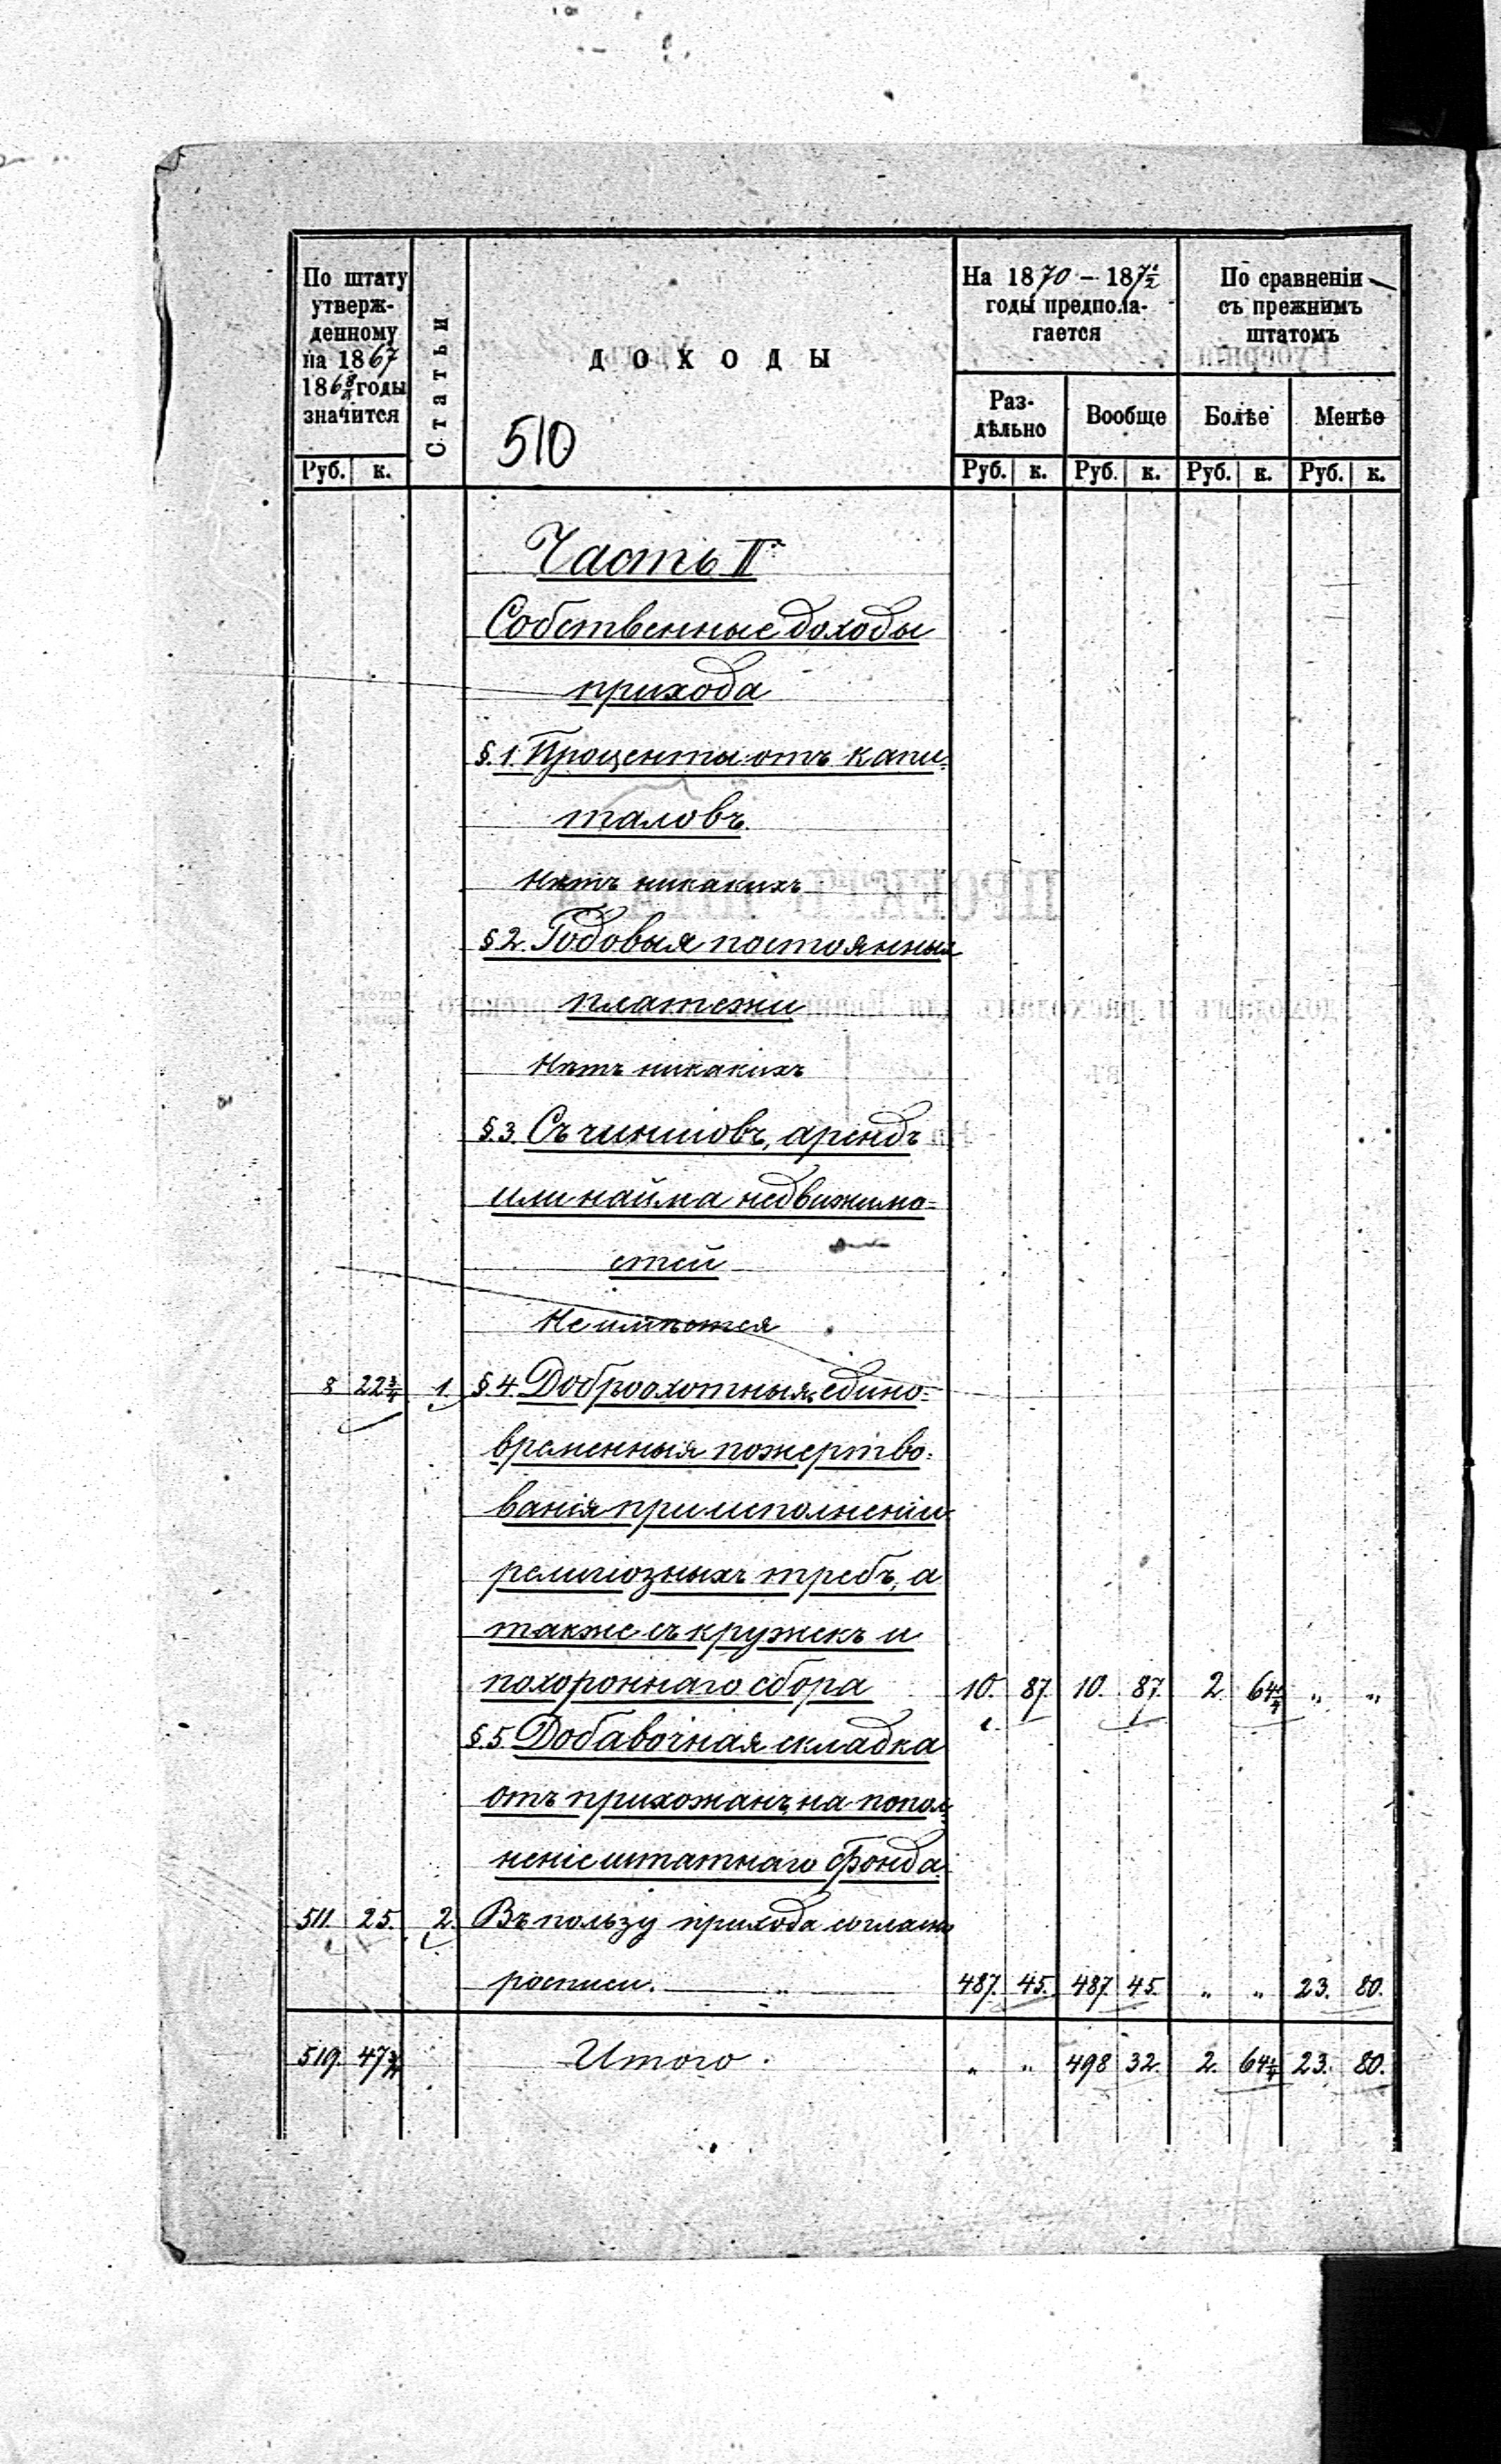 По штату
утверж-
денному
на 1867
186 8/9 годы
значится
Руб. к.
Статьи
ДОХОДЫ
510
На 1870 – 187 1/2
годы предпола-
гается
Раз-
дѣльно
Вообще
Руб. к. Руб. к.
По сравненіи
съ прежнимъ
штатомъ
Болѣе Менѣе
Руб. к. Руб. к.
Часть II
Собственные доходы
прихода
§.1. Проценты отъ капи-
таловъ.
Нѣтъ никакихъ
§2. Годовыя постоянныя
платежи
Нѣтъ никакихъ
§.3. Съ чиншовъ, арендъ
или найма недвижимо=
стей
Не имѣется
8 22 3/4 1. §4. Доброхотныя, едино=
временныя пожертво=
ванія при исполненіи
религіозныхъ требъ, а
также съ кружекъ и
похороннаго сбора 10. 87. 10. 87. 2. 64 1/4 „ „
§.5. Добавочная складка
отъ прихожанъ, на попол-
неніе штатнаго фонда.
511. 25. 2. Въ пользу прихода согласно
росписи. 487. 45. 487. 45. „ „ 23. 80.
519. 47 3/4 Итого. „ „ 498 32. 2. 64 1/4 23. 80.